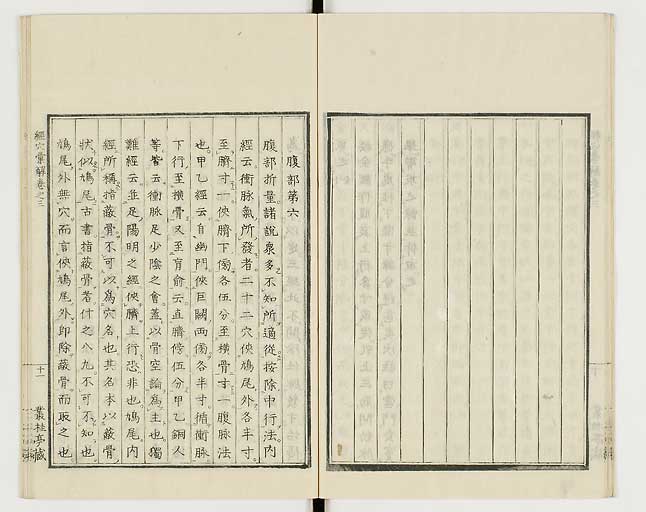 腹部第六
腹部折量諸說衆多不知所適從按除中行法內
經云衝脈氣所發者二十二穴俠鳩尾外各半寸
至臍寸一俠臍下傍各伍分至橫骨寸一腹脈法
也甲乙經云自幽門俠巨闕兩傍各半寸循衝脈
下行至橫骨又至肓俞云直臍傍伍分甲乙銅人
等皆云衝脈足少陰之會蓋以骨空論爲主也獨
難經云並足陽明之經俠臍上行恐非也鳩尾內
經所稱指蔽骨不可以爲穴名也其名本以蔽骨
狀似鳩尾古書指蔽骨者什之八九不可不知也
鳩尾外無穴而言俠鳩尾外卽除蔽骨而取之也
經穴彙解卷之三
十一
叢桂亭藏